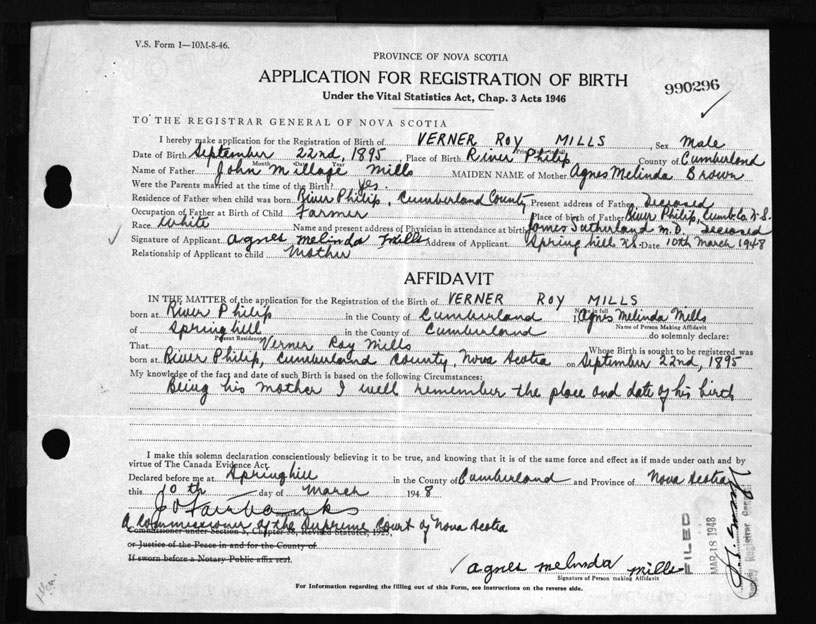 V.S. Form 1—10M-8-46.
PROVINCE OF NOVA SCOTIA
APPLICATION FOR REGISTRATION OF BIRTH
990296
Under the Vital Statistics Act, Chap. 3 Acts 1946
TO THE REGISTRAR GENERAL OF NOVA SCOTIA
I hereby make application for the Registration of Birth of VERNER ROY MILLS, Sex Male
Date of Birth September 22nd, 1895, Place of Birth River Philip County of Cumberland
Month Date Year
Name of Father John Millage Mills MAIDEN NAME of Mother Agnes Melinda Brown
Were the Parents married at the time of the Birth? Yes.
Residence of Father when child was born River Philip, Cumberland County Present address of Father Deceased
Occupation of Father at Birth of Child Farmer Place of birth of Father River Philip, Cumb. Co. N.S.
Race White Name and present address of Physician in attendance at birth James Sutherland M.D. Deceased
Signature of Applicant Agnes Melinda Mills Address of Applicant Springhill N.S. Date 10th March 1948
Relationship of Applicant to child Mother
AFFIDAVIT
IN THE MATTER of the application for the Registration of the Birth of VERNER ROY MILLS
born at River Philip in the County of Cumberland I, Agnes Melinda Mills
Name in full
of Springhill in the County of Cumberland do solemnly declare:
Present Residence
Name of Person Making Affidavit
That Verner Roy Mills Whose Birth is sought to be registered was
born at River Philip, Cumberland County, Nova Scotia on September 22nd, 1895
My knowledge of the fact and date of such Birth is based on the following Circumstances:
Being his mother I well remember the place and date of his birth
I make this solemn declaration conscientiously believing it to be true, and knowing that it is of the same force and effect as if made under oath and by
virtue of The Canada Evidence Act.
Declared before me at Springhill in the County of Cumberland and Province of Nova Scotia
this 10th day of March 1948
J O Fairbanks
A Commissioner of the Supreme Court of Nova Scotia
Commissioner under Section 5, Chapter 38, Revised Statutes, 1923,
or Justice of the Peace in and for the County of
If sworn before a Notary Public affix seal.
Agnes Melinda Mills
Signature of Person making Affidavit
For Information regarding the filling out of this Form, see instructions on the reverse side.
FILED
MAR 18 1948
Registrar General